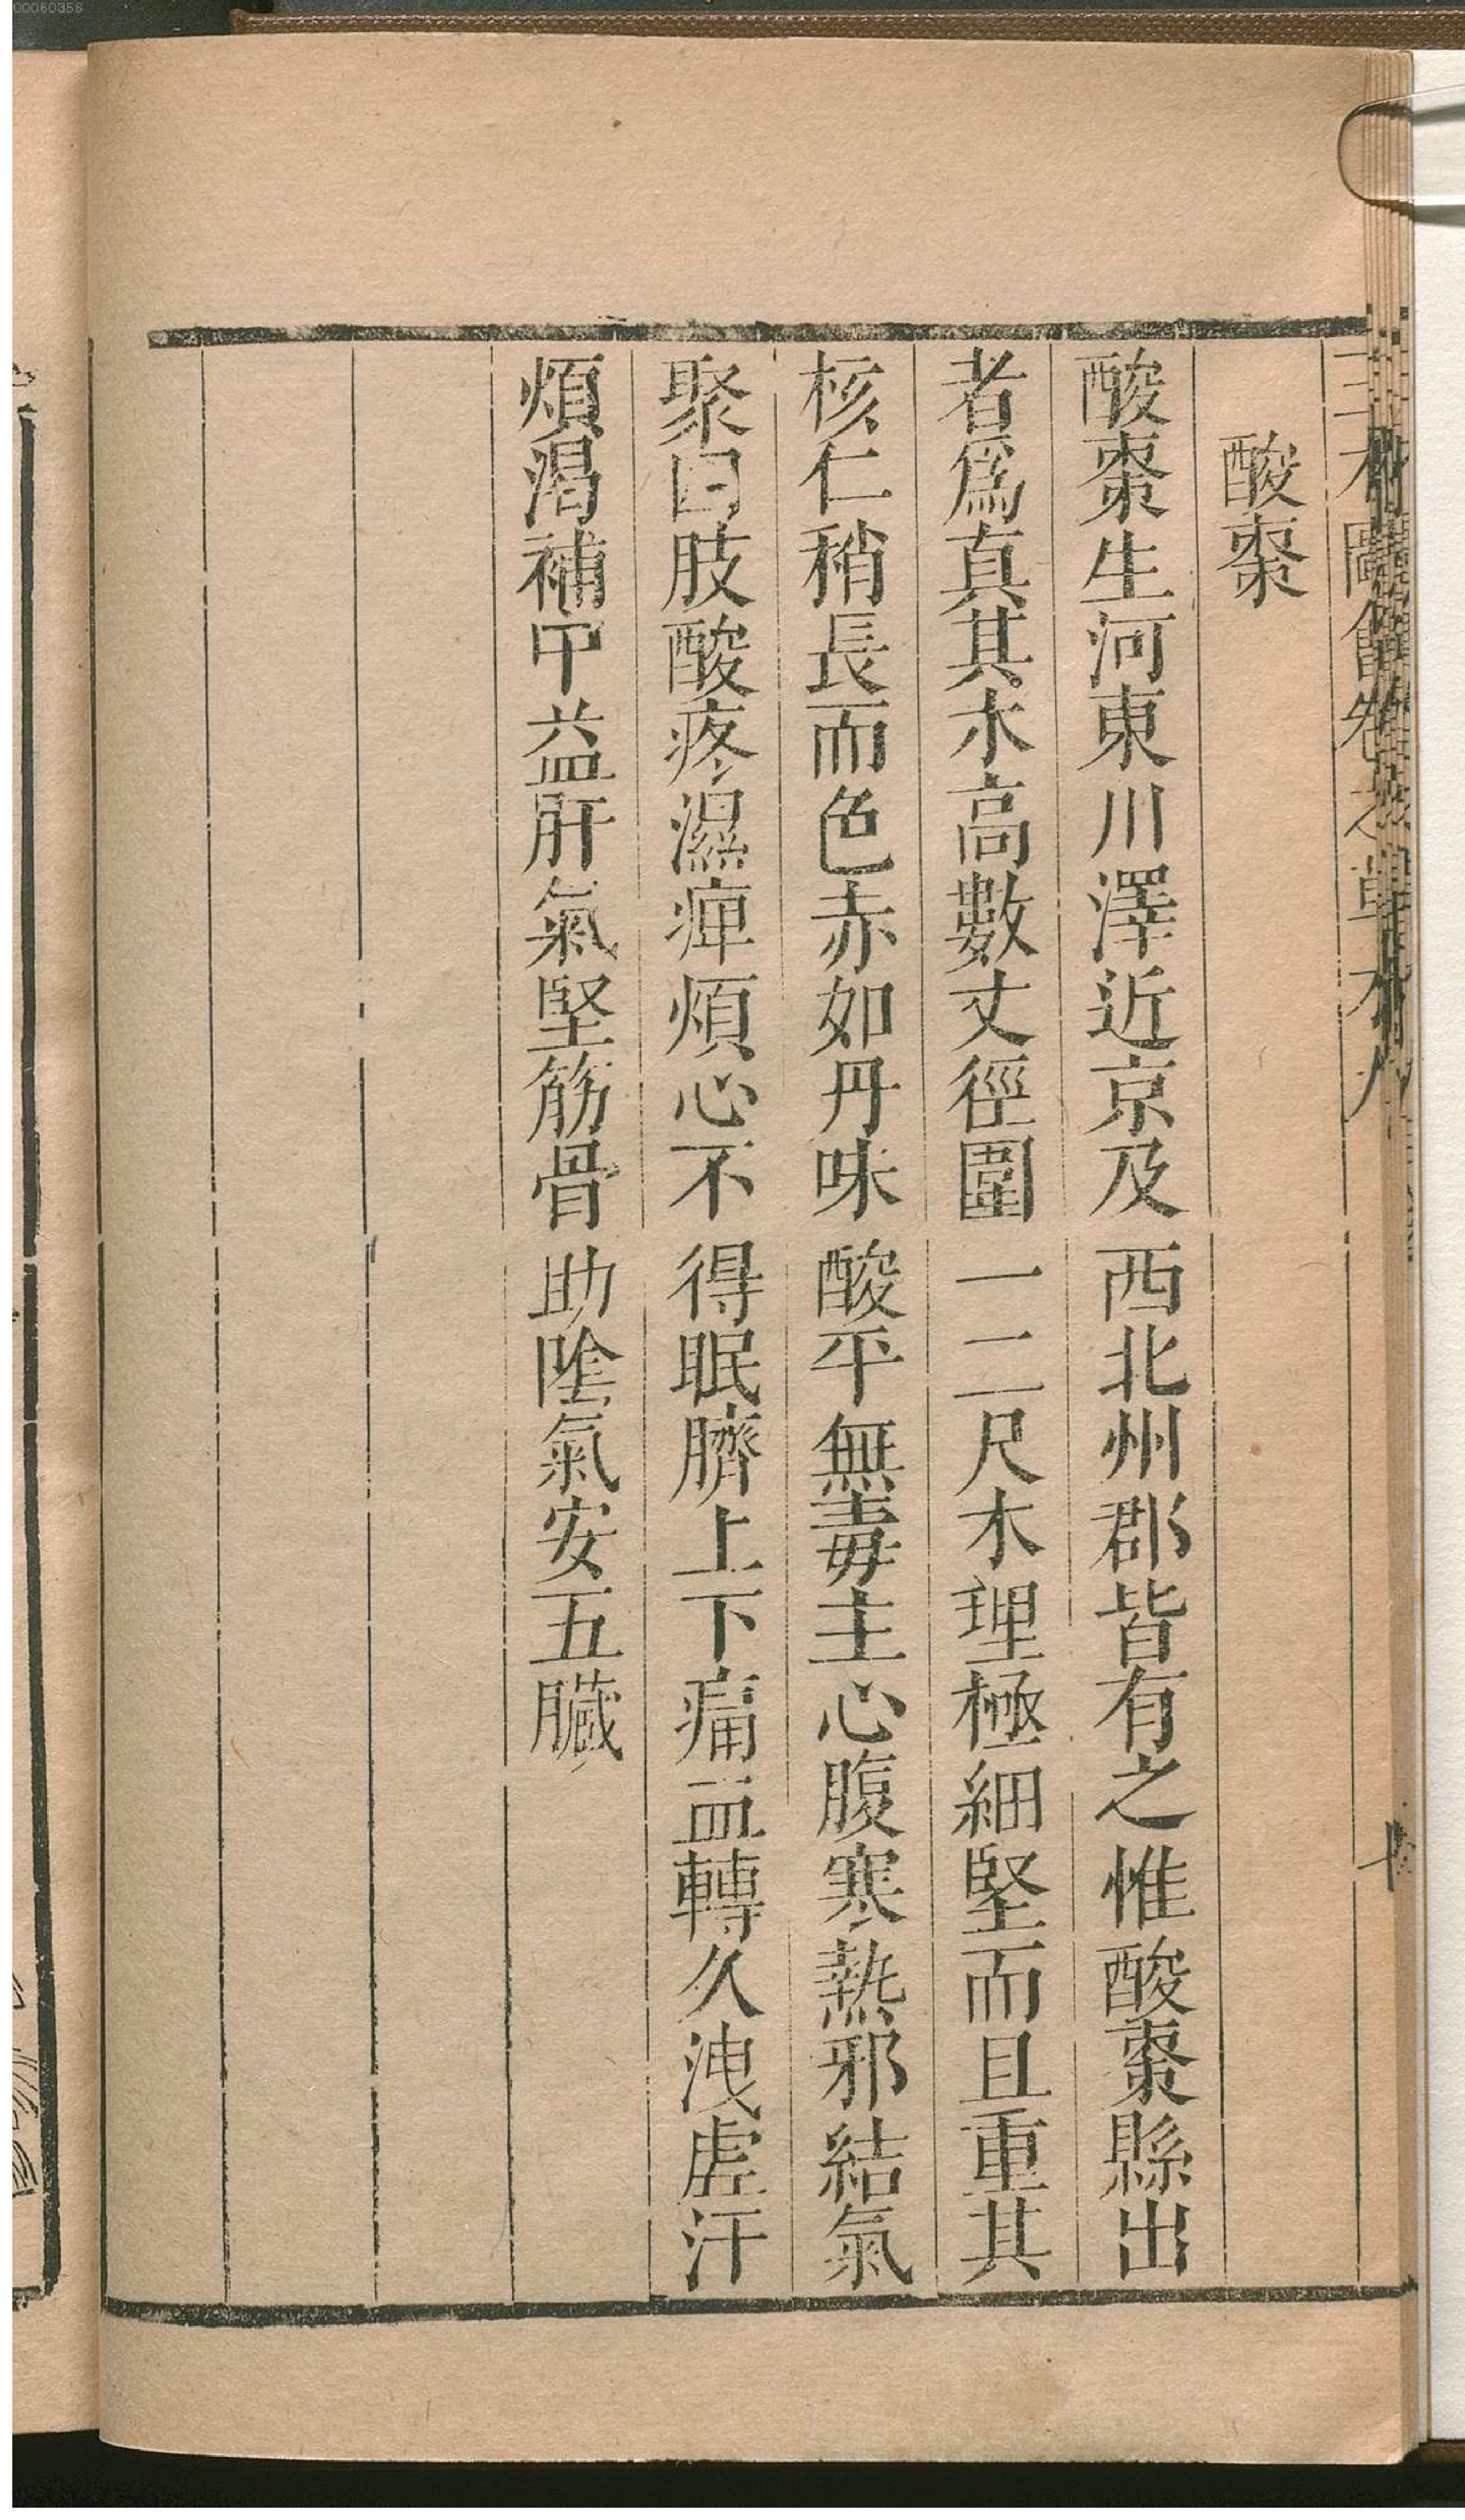 00060358
酸棗
酸棗生河東川澤近京及西北州郡皆有之惟酸棗縣出
者爲真其木高數丈徑圍一二尺木理極細堅而且重其
核仁稍長而色赤如丹味酸平無毒主心腹寒熱邪結氣
聚四肢酸疼濕痺煩心不得眠臍上下痛血轉久洩虛汗
煩渴補中益肝氣堅筋骨助陰氣安五臟